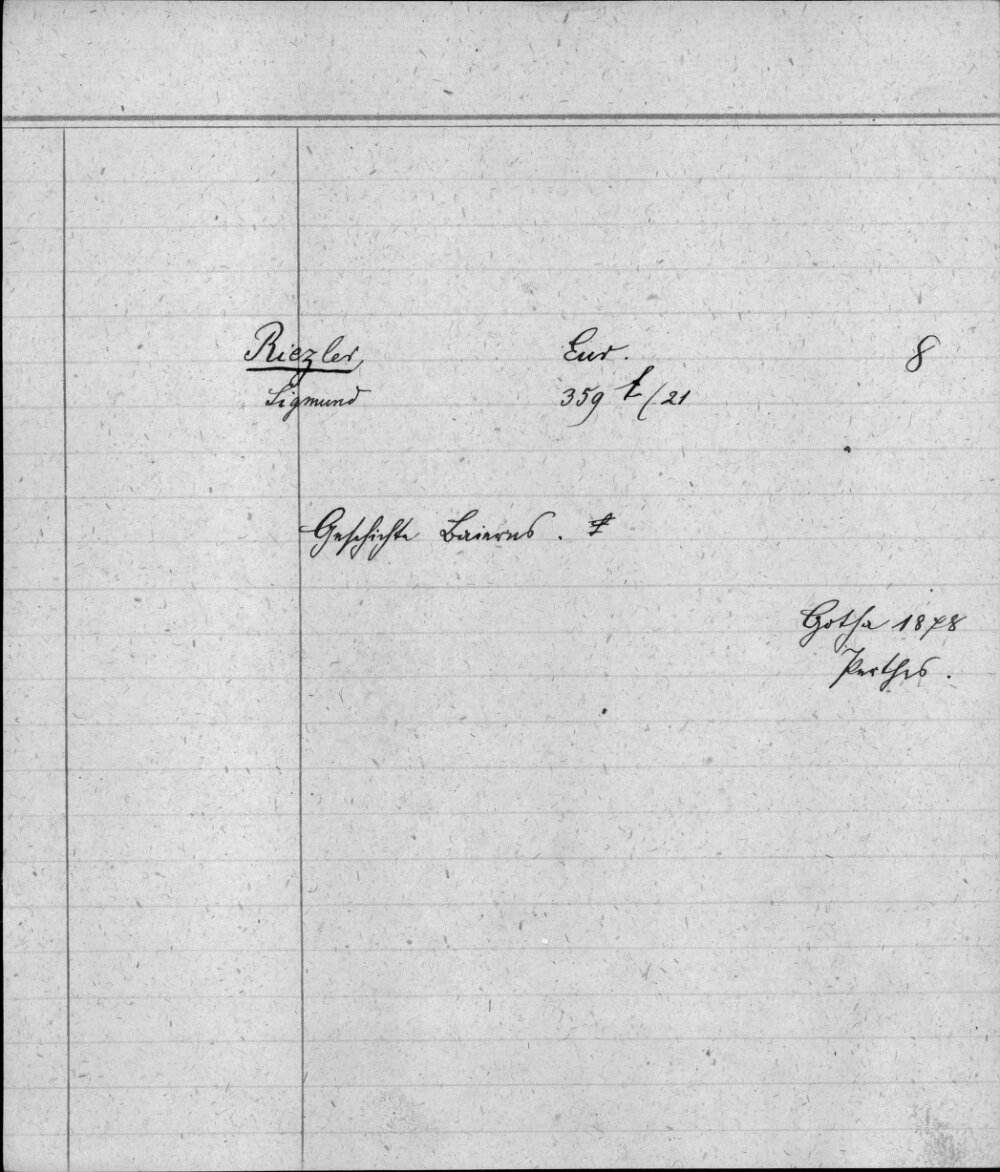 Riezler, Eur. 8
Sigmund 359 t/21
Geschichte Baierns.
Gotha 1878
Perthes.